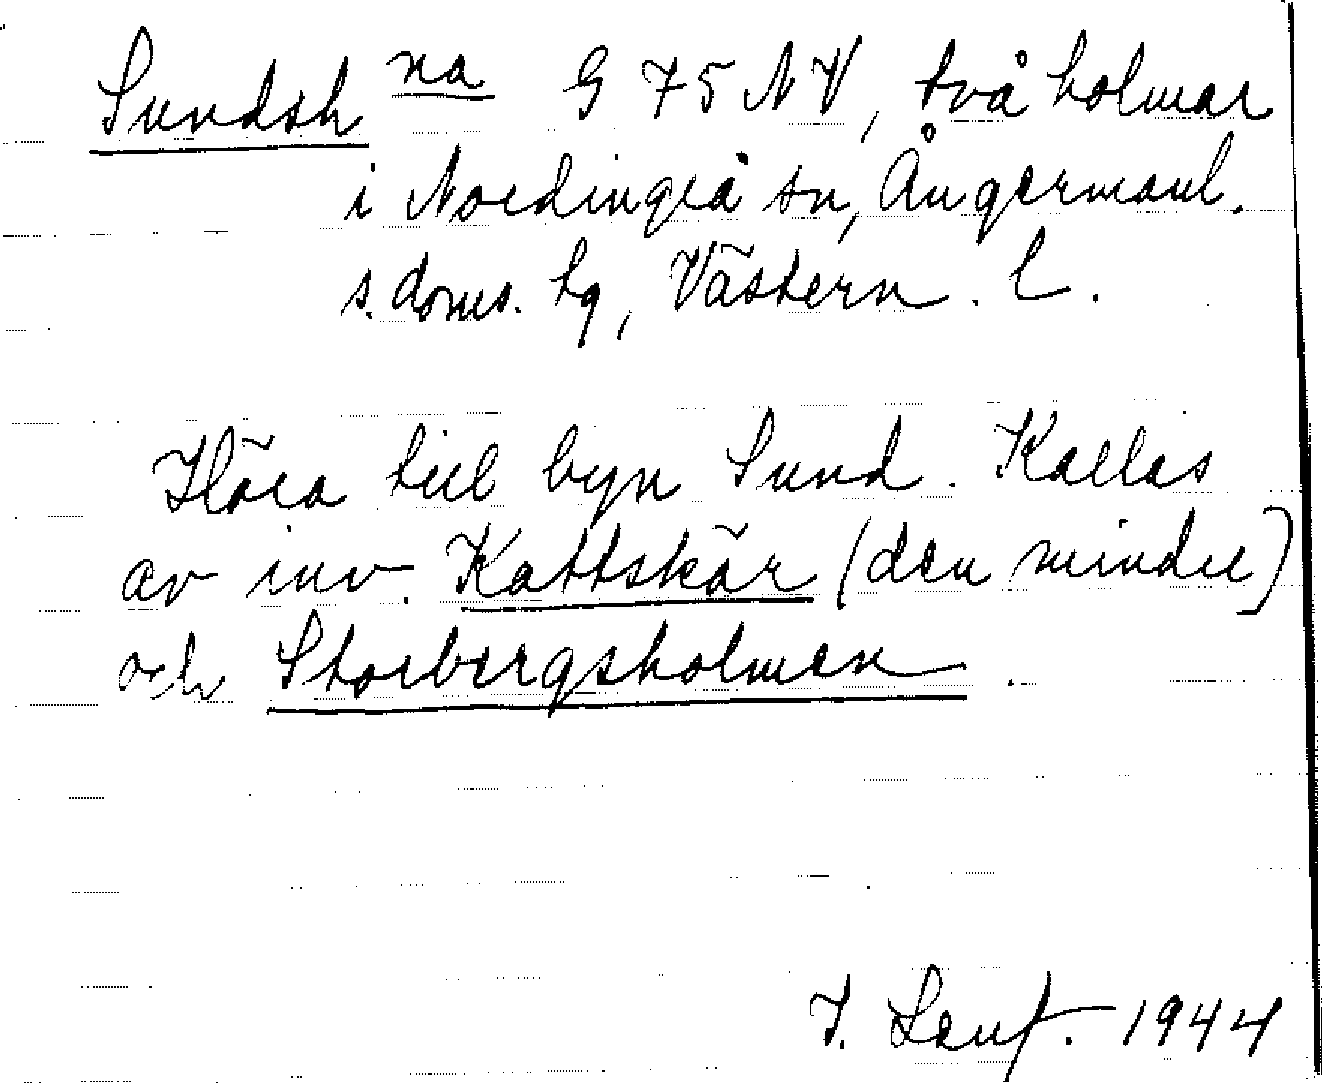 Sundsh na G 75 NV, två holmar
i Nordingrå sn, Ångermanl.
s. doms. tg, Västern. l.
Höra till byn Sund. Kallas
av inv. Kattskär (den mindre)
och Storbergsholmen.
1944